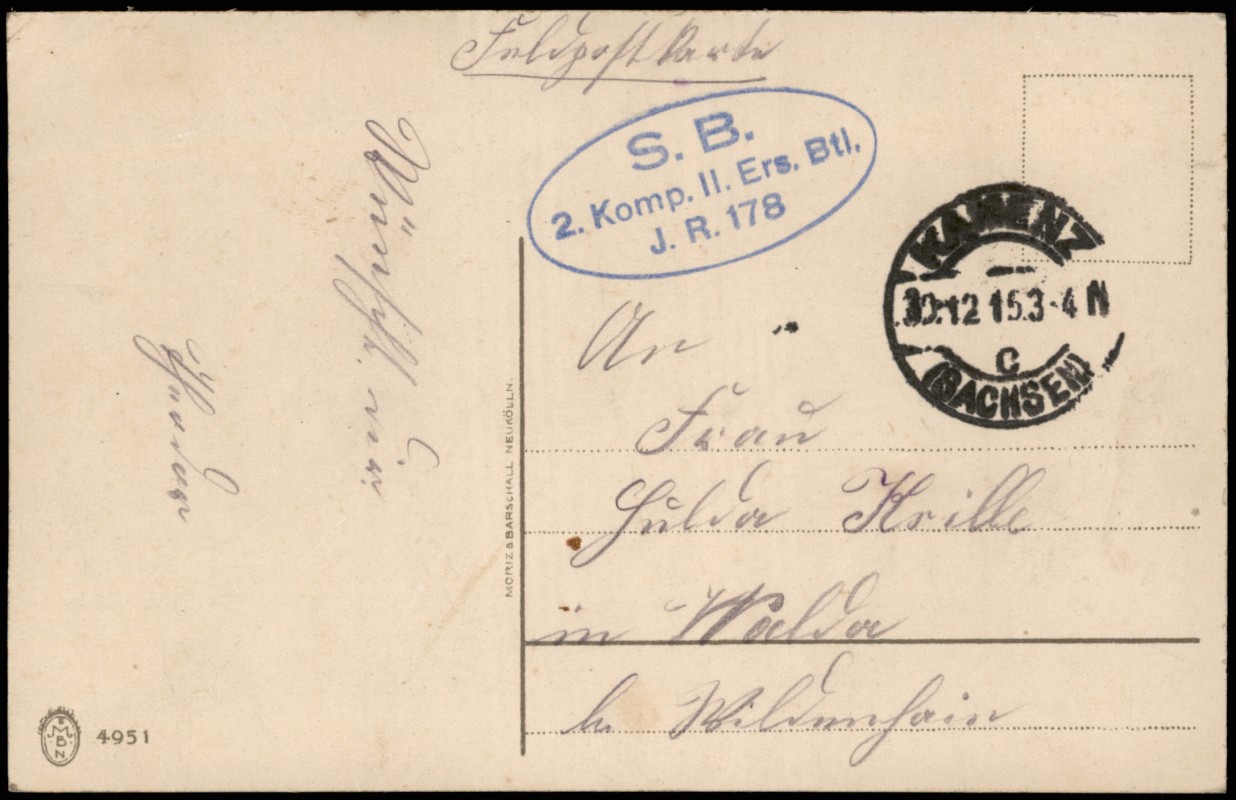 Feldpostkarte
S. B.
2. Komp. II. Ers. Btl.
J. R. 178
KAMENZ
30.12 15.3-4 N
c
(SACHSEN)
An
Frau
Hulda Krille
in Walda
b. Wildenhain
Wünscht Euer
MORIZ & BARSCHALL NEUKÖLLN.
MBN
4951